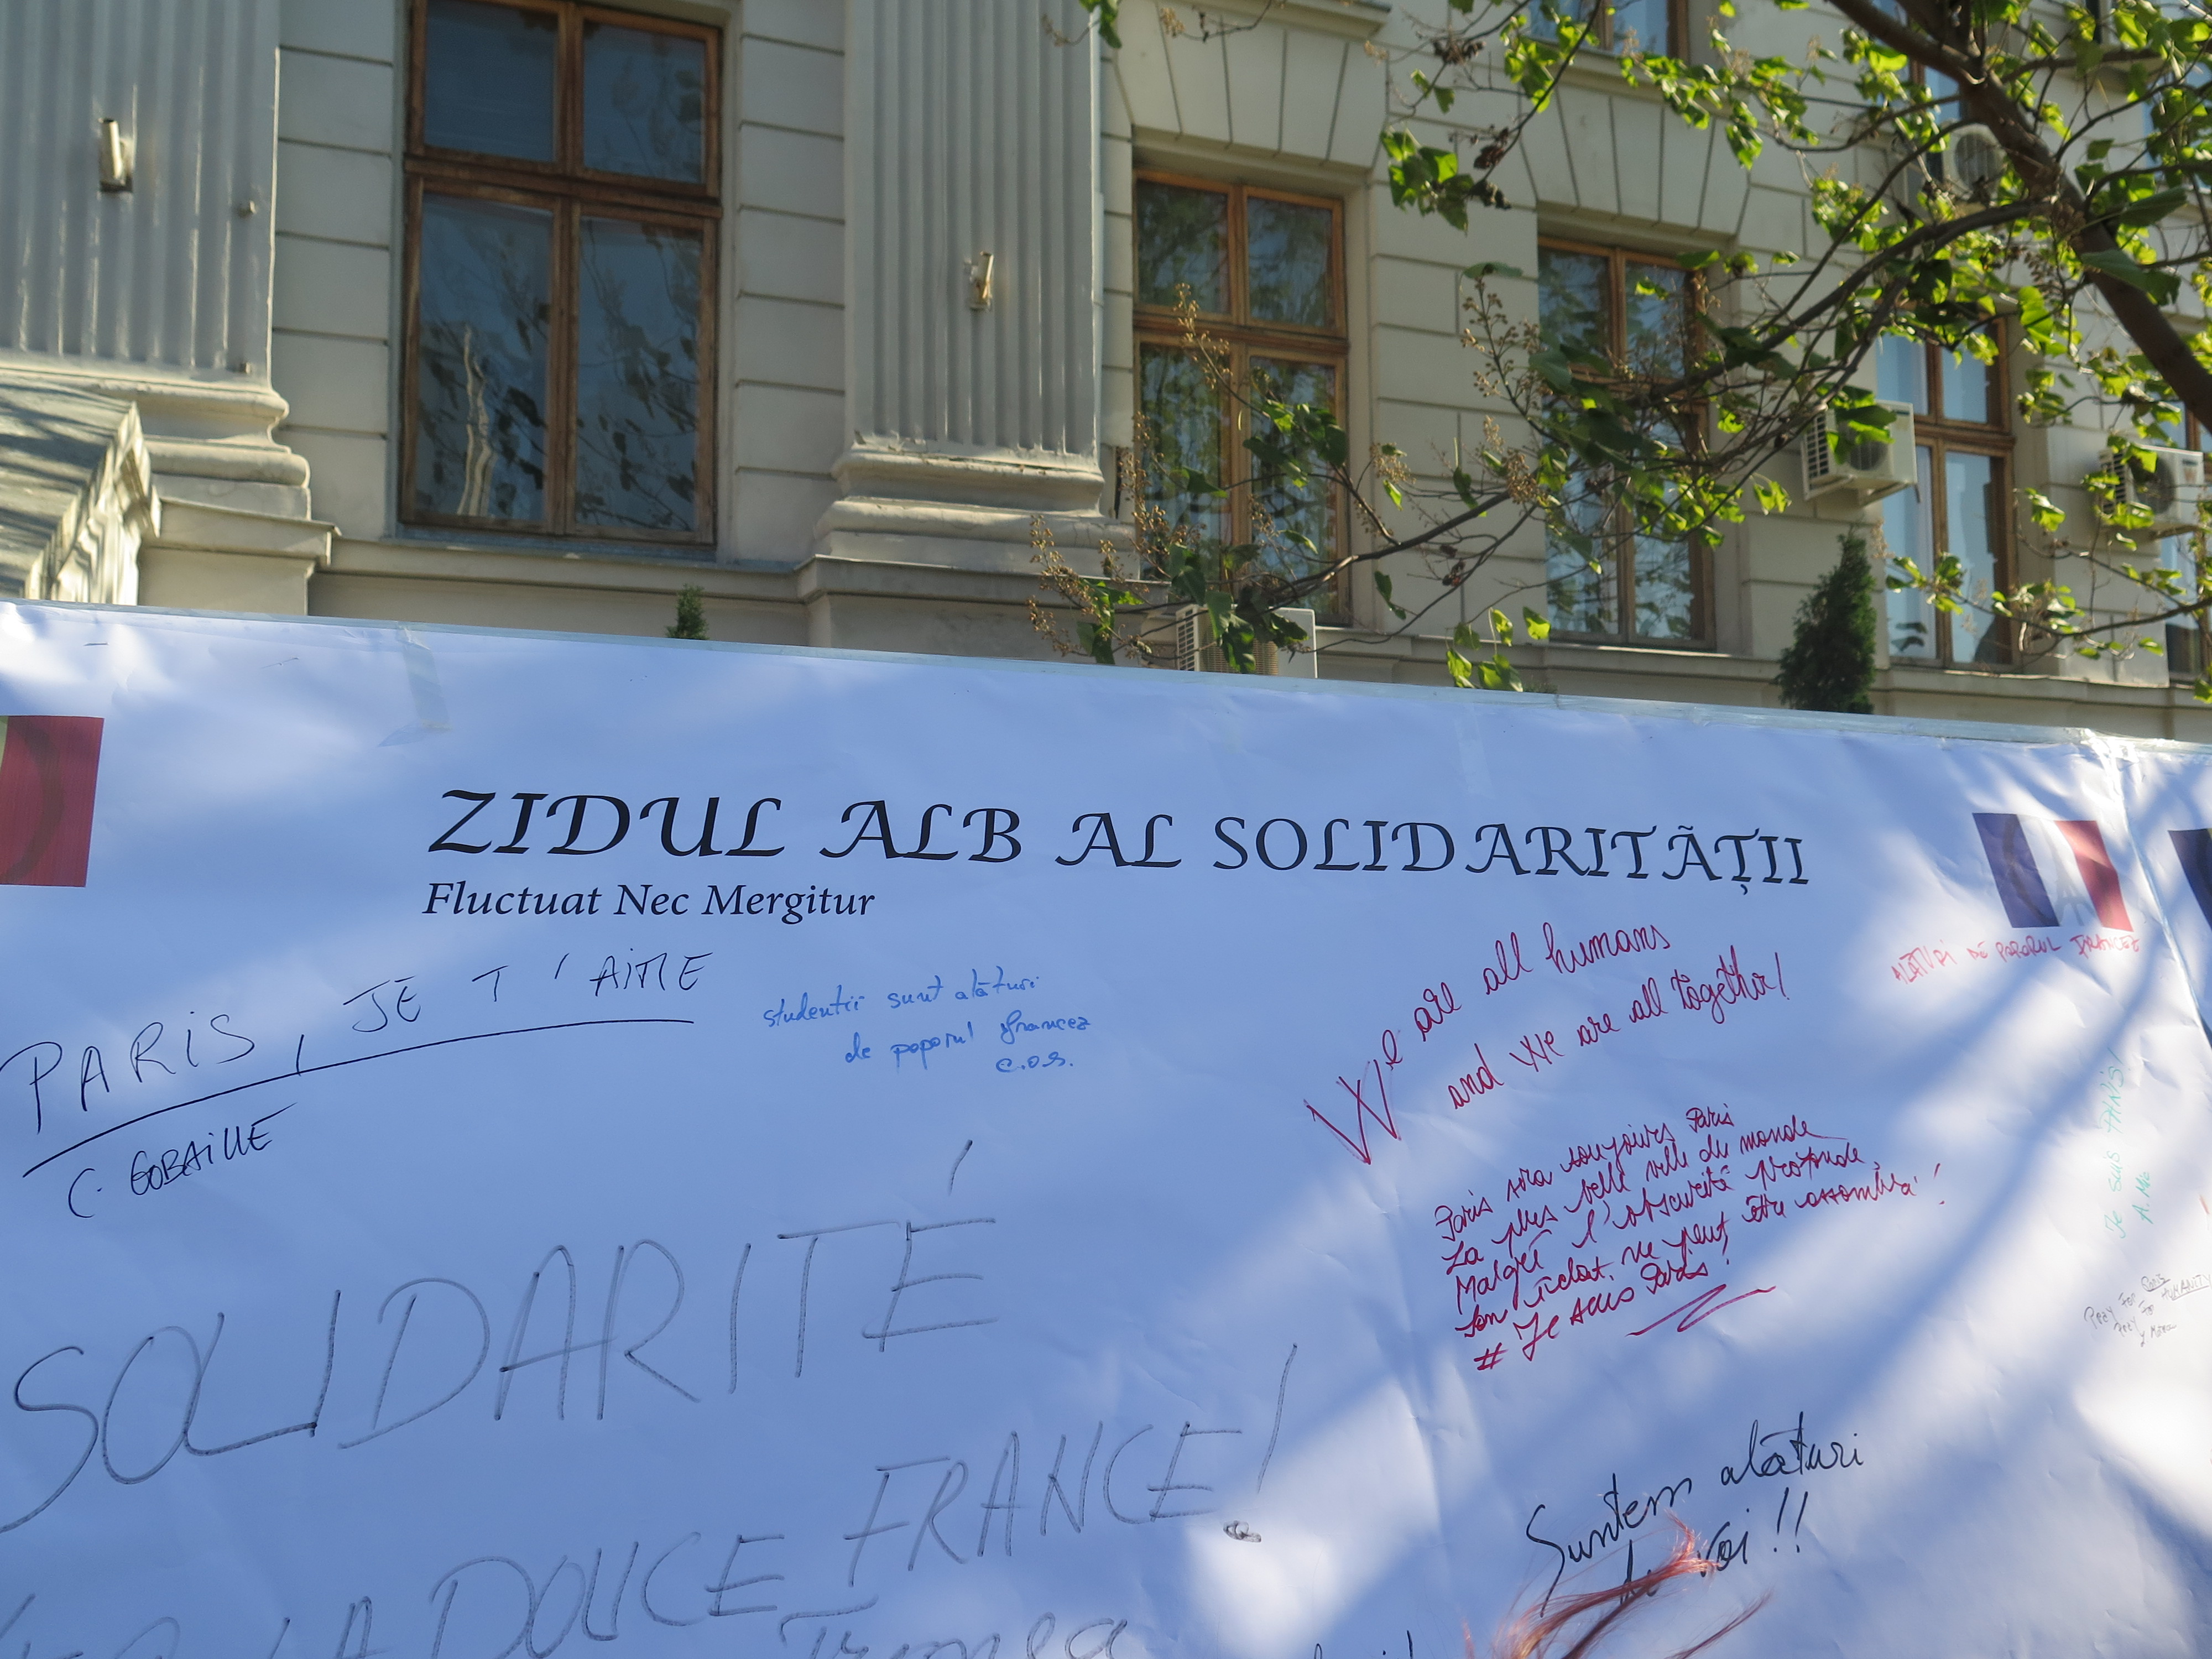 ZIDUL ALB AL SOLIDARITĂȚII
Fluctuat Nec Mergitur
PARIS, JE T'AIME
C. GOBAILLE
studenții sunt alături
de poporul francez
C.O.S.
We are all humans
and We are all together!
ALĂTURI DE POPORUL FRANCEZ
Paris sera toujours Paris
La plus belle ville du monde
Malgré l'obscurité profonde,
Son éclat ne peut être assombri!
# Je suis Paris!
Je suis PARIS!
Pray for Paris
Pray for HUMANITY
SOLIDARITÉ
LA DOUCE FRANCE!
Suntem alături
de voi!!